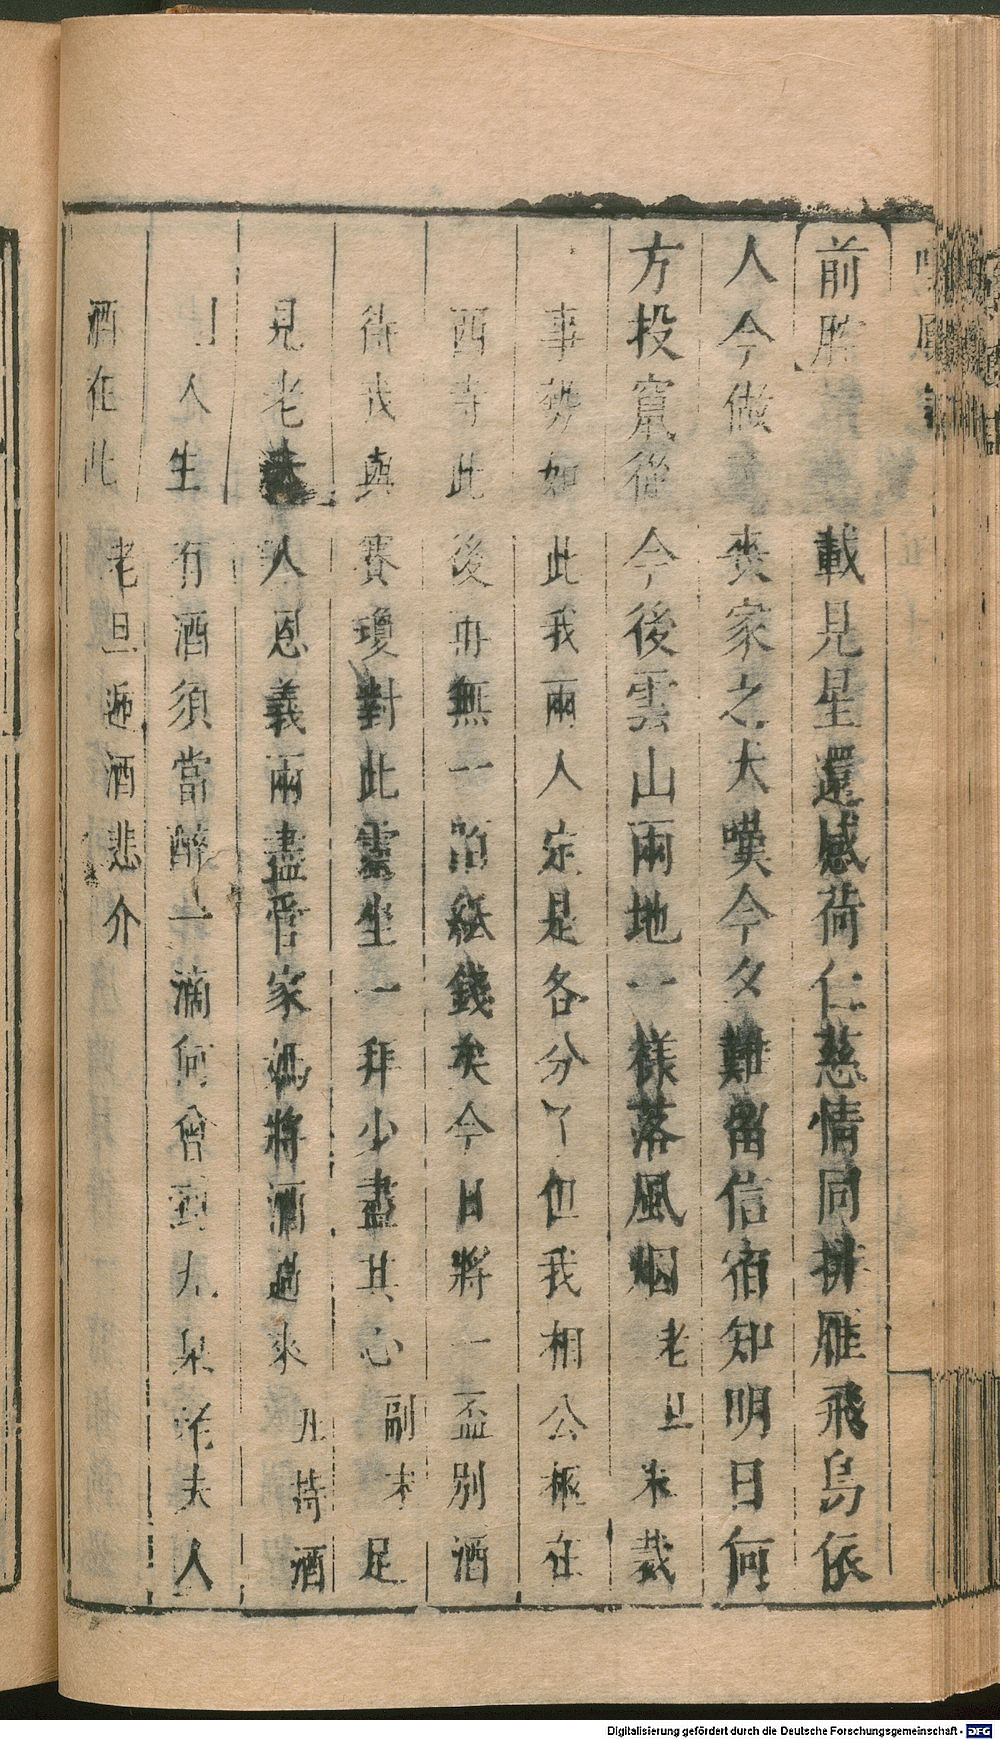 前腔 載見星還感荷仁慈情同排雁飛鳥依
人今做 喪家之犬嘆今夕難留信宿知明日何
方投竄從今後雲山兩地一樣落風烟 老旦 朱裁
事勢如此我兩人定是各分了但我相公柩在
西寺此後再無一陌紙錢矣今日將一盃別酒
待我與賽瓊對此靈坐一拜少盡其心 副末 足
見老夫人恩義兩盡管家媽將酒過來 丑持酒
人生有酒須當醉一滴何曾到九泉 夫人
酒在此 老旦遞酒悲介
Digitalisierung gefördert durch die Deutsche Forschungsgemeinschaft - DFG